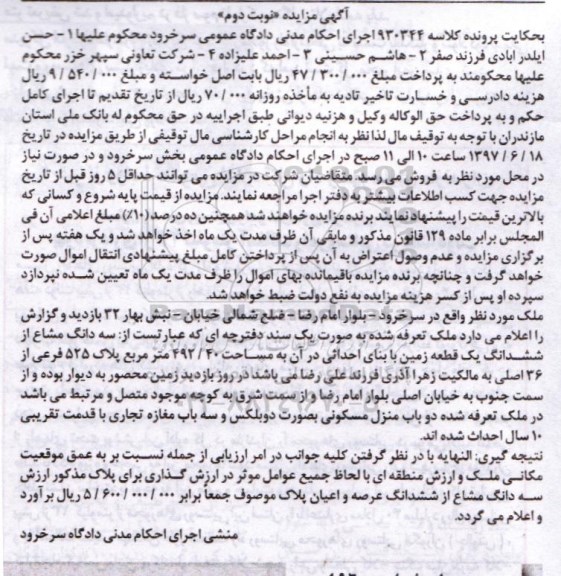 آگهی مزایده «نوبت دوم»
بحکایت پرونده کلاسه ۹۳۰۳۴۴ اجرای احکام مدنی دادگاه عمومی سرخرود محکوم علیها ۱- حسن
ایلدر ابادی فرزند صفر ۲- هاشم حسینی ۳- احمد علیزاده ۴- شرکت تعاونی سپهر خزر محکوم
علیها محکومند به پرداخت مبلغ ۴۷/۳۰۰/۰۰۰ ریال بابت اصل خواسته و مبلغ ۹/۵۴۰/۰۰۰ ریال
هزینه دادرسی و خسارت تاخیر تادیه به مأخذه روزانه ۷۰/۰۰۰ ریال از تاریخ تقدیم تا اجرای کامل
حکم و به پرداخت حق الوکاله وکیل و هزنیه دیوانی طبق اجراییه در حق محکوم له بانک ملی استان
مازندران با توجه به توقیف مال لذا نظر به انجام مراحل کارشناسی مال توقیفی از طریق مزایده در تاریخ
۱۳۹۷/۶/۱۸ ساعت ۱۰ الی ۱۱ صبح در اجرای احکام دادگاه عمومی بخش سرخرود و در صورت نیاز
در محل مورد نظر به فروش می رسد متقاضیان شرکت در مزایده می توانند حداقل ۵ روز قبل از تاریخ
مزایده جهت کسب اطلاعات بیشتر به دفتر اجرا مراجعه نمایند. مزایده از قیمت پایه شروع و کسانی که
بالاترین قیمت را پیشنهاد نمایند برنده مزایده خواهند شد همچنین ده درصد (۱۰٪) مبلغ اعلامی آن فی
المجلس برابر ماده ۱۲۹ قانون مذکور و مابقی آن ظرف مدت یک ماه اخذ خواهد شد و یک هفته پس از
برگزاری مزایده و عدم وصول اعتراض به آن پس از پرداختن کامل مبلغ پیشنهادی انتقال اموال صورت
خواهد گرفت و چنانچه برنده مزایده باقیمانده بهای اموال را ظرف مدت یک ماه تعیین شده نپردازد
سپرده او پس از کسر هزینه مزایده به نفع دولت ضبط خواهد شد.
ملک مورد نظر واقع در سرخرود - بلوار امام رضا - ضلع شمالی خیابان - نبش بهار ۳۲ بازدید و گزارش
را اعلام می دارد ملک تعرفه شده به صورت یک سند دفترچه ای که عبارتست از: سه دانگ مشاع از
ششدانگ یک قطعه زمین با بنای احداثی در آن به مساحت ۴۹۲/۴۰ متر مربع پلاک ۵۲۵ فرعی از
۳۶ اصلی به مالکیت زهرا آذری فرزند علی رضا می باشد در روز بازدید زمین محصور به دیوار بوده و از
سمت جنوب به خیابان اصلی بلوار امام رضا و از سمت شرق به کوچه موجود متصل و مرتبط می باشد
در ملک تعرفه شده دو باب منزل مسکونی بصورت دوبلکس و سه باب مغازه تجاری با قدمت تقریبی
۱۰ سال احداث شده اند.
نتیجه گیری: النهایه با در نظر گرفتن کلیه جوانب در امر ارزیابی از جمله نسبت بر به عمق موقعیت
مکانی ملک و ارزش منطقه ای با لحاظ جمیع عوامل موثر در ارزش گذاری برای پلاک مذکور ارزش
سه دانگ مشاع از ششدانگ عرصه و اعیان پلاک موصوف جمعاً برابر ۵/۶۰۰/۰۰۰/۰۰۰ ریال برآورد
و اعلام می گردد.
منشی اجرای احکام مدنی دادگاه سرخرود